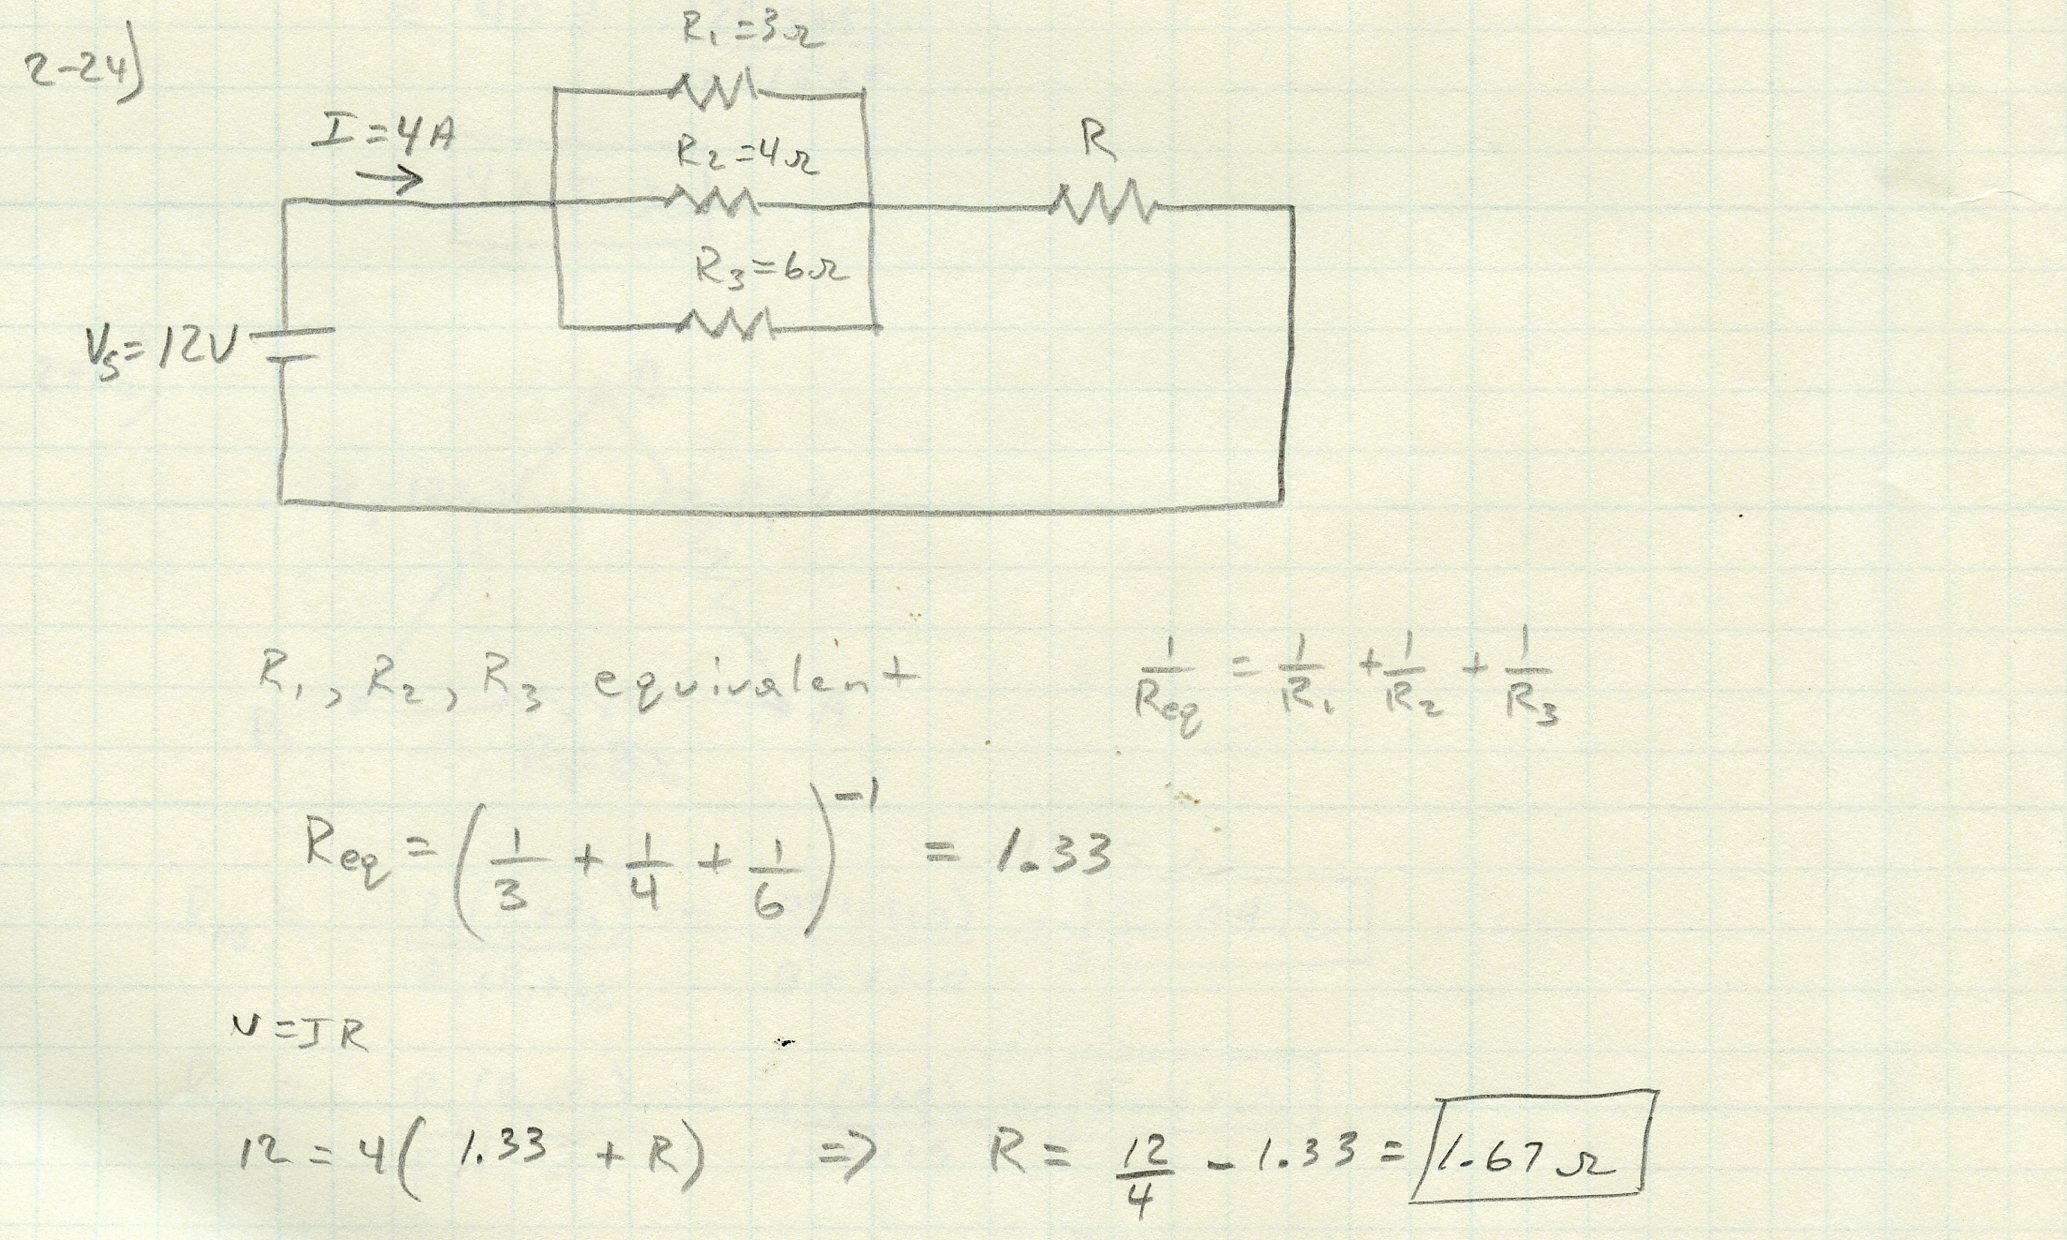 2-24)
R₁=3Ω
I=4A
R₂=4Ω
R
R₃=6Ω
Vs=12V
R₁, R₂, R₃ equivalent 1/Req = 1/R₁ + 1/R₂ + 1/R₃
Req = (1/3 + 1/4 + 1/6)⁻¹ = 1.33
V=IR
12 = 4( 1.33 + R) => R = 12/4 - 1.33 = 1.67Ω